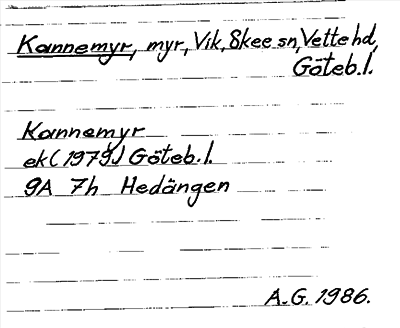 Kannemyr, myr, Vik, Skee sn, Vette hd,
Göteb.l.
Kannemyr
ek (1979) Göteb.l.
9A 7h Hedängen
A.G. 1986.